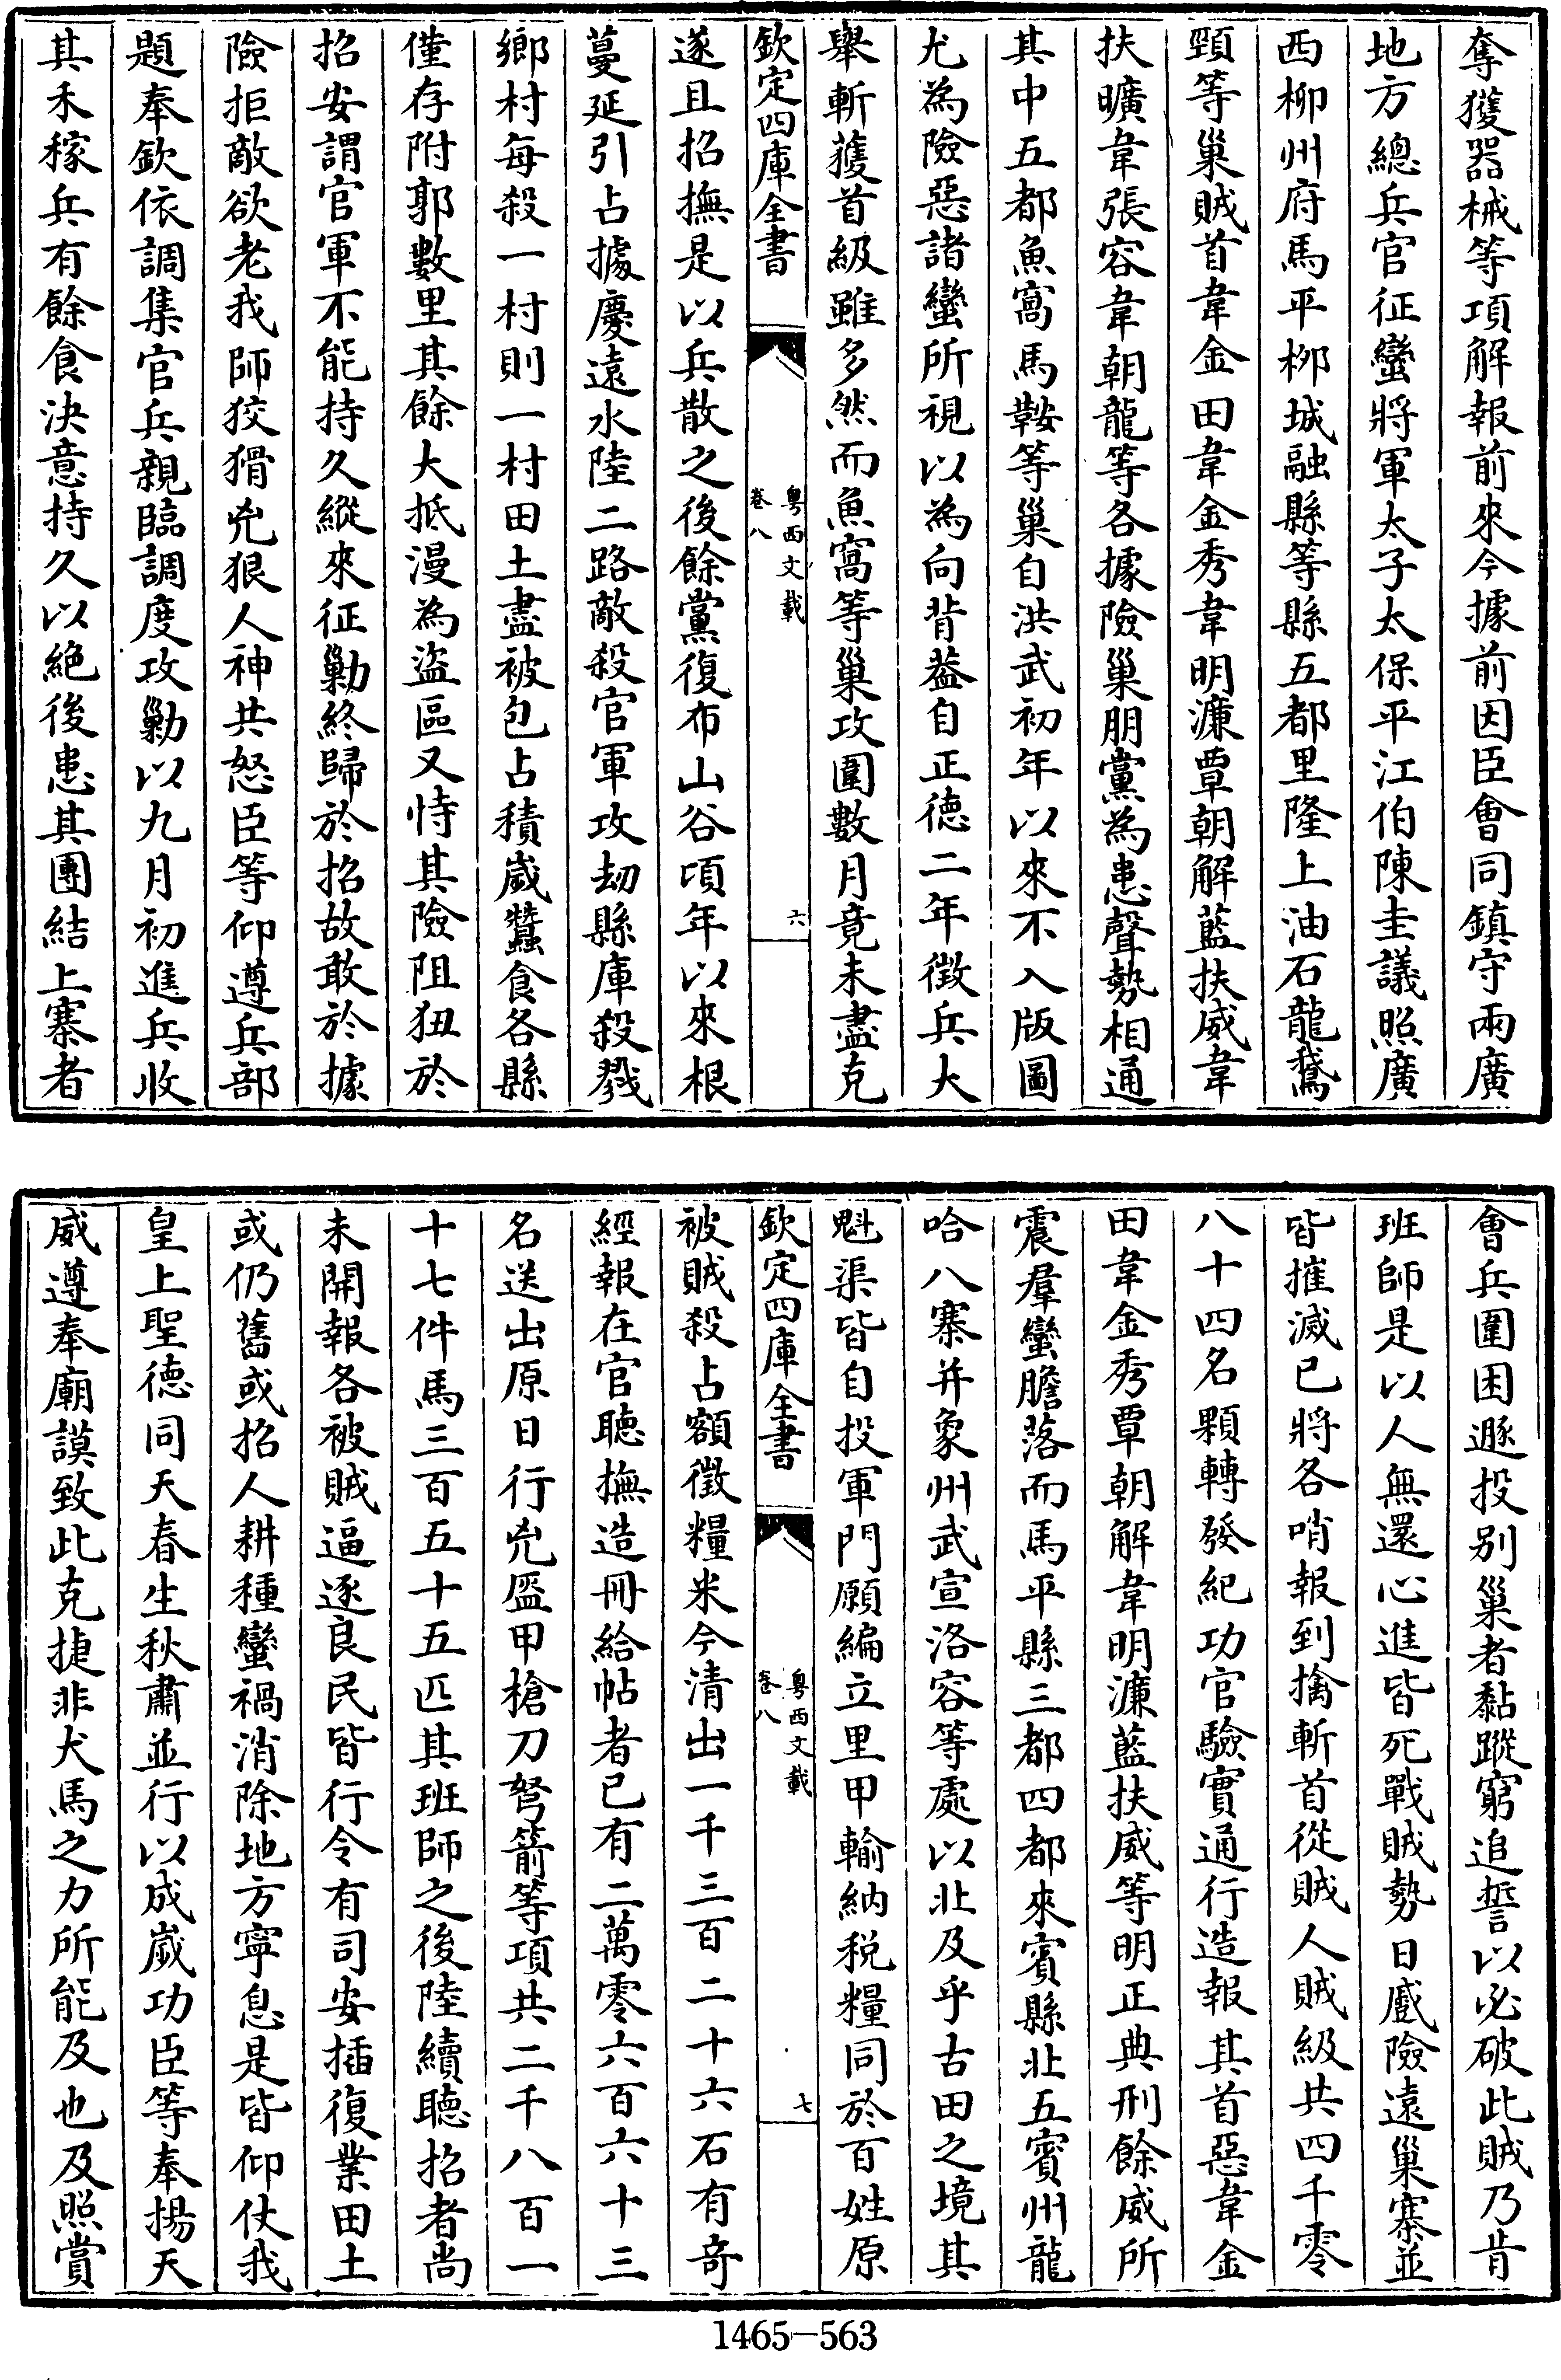 奪獲器械等項解報前來今據前因臣會同鎮守兩廣
地方總兵官征蠻將軍太子太保平江伯陳圭議照廣
西柳州府馬平柳城融縣等縣五都里隆上油石龍鵞
頸等巢賊首韋金田韋金秀韋明濂覃朝解藍扶威韋
扶曠韋張容韋朝龍等各據險巢朋黨為患聲勢相通
其中五都魚窩馬鞍等巢自洪武初年以來不入版圖
尤為險惡諸蠻所視以為向背葢自正德二年徵兵大
舉斬獲首級雖多然而魚窩等巢攻圍數月竟未盡克
欽定四庫全書
粤西文載
卷八
六
遂且招撫是以兵散之後餘黨復布山谷頃年以來根
蔓延引占據慶遠水陸二路敵殺官軍攻刼縣庫殺戮
鄉村每殺一村則一村田土盡被包占積嵗蠶食各縣
僅存附郭數里其餘大抵漫為盜區又恃其險阻狃於
招安謂官軍不能持久縱來征勦終歸於招故敢於據
險拒敵欲老我師狡猾兇狠人神共怒臣等仰遵兵部
題奉欽依調集官兵親臨調度攻勦以九月初進兵收
其禾稼兵有餘食決意持久以絶後患其團結上寨者
會兵圍困遯投别巢者黏蹤窮追誓以必破此賊乃肯
班師是以人無還心進皆死戰賊勢日慼險遠巢寨並
皆摧滅已將各哨報到擒斬首從賊人賊級共四千零
八十四名顆轉發紀功官驗實通行造報其首惡韋金
田韋金秀覃朝解韋明濂藍扶威等明正典刑餘威所
震羣蠻膽落而馬平縣三都四都來賓縣北五賓州龍
哈八寨并象州武宣洛容等處以北及乎古田之境其
魁渠皆自投軍門願編立里甲輸納稅糧同於百姓原
欽定四庫全書
粤西文載
卷八
七
被賊殺占額徵糧米今清出一千三百二十六石有奇
經報在官聽撫造冊給帖者已有二萬零六百六十三
名送出原日行兇盔甲槍刀弩箭等項共二千八百一
十七件馬三百五十五匹其班師之後陸續聽招者尚
未開報各被賊逼逐良民皆行令有司安插復業田土
或仍舊或招人耕種蠻禍消除地方寧息是皆仰仗我
皇上聖德同天春生秋肅並行以成嵗功臣等奉揚天
威遵奉廟謨致此克捷非犬馬之力所能及也及照賞
1465-563